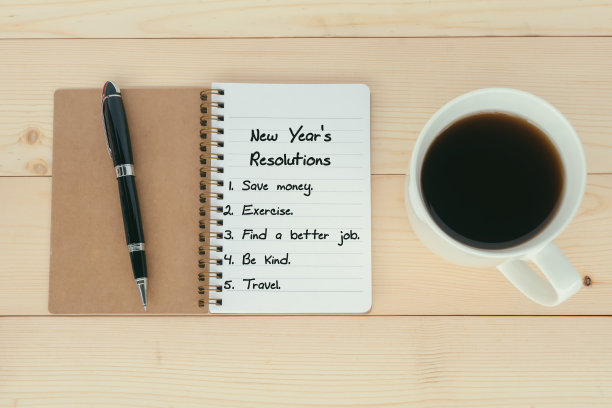 New Year's
Resolutions
1. Save money.
2. Exercise.
3. Find a better job.
4. Be Kind.
5. Travel.